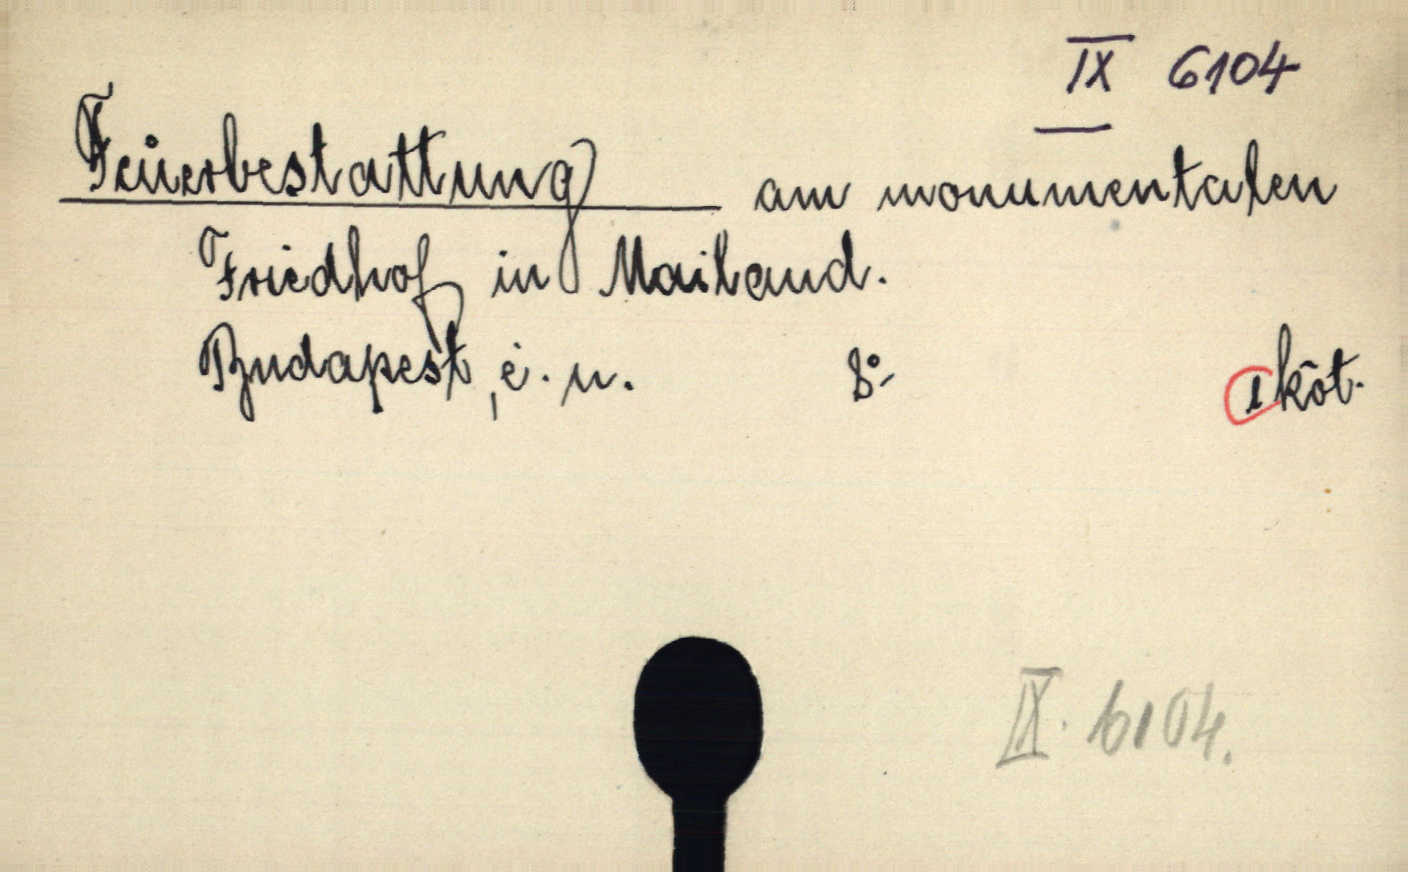 IX 6104
Feuerbestattung am monumentalen
Friedhof in Mailand.
Budapest, é. n. 8° 1 köt.
IX. 6104.